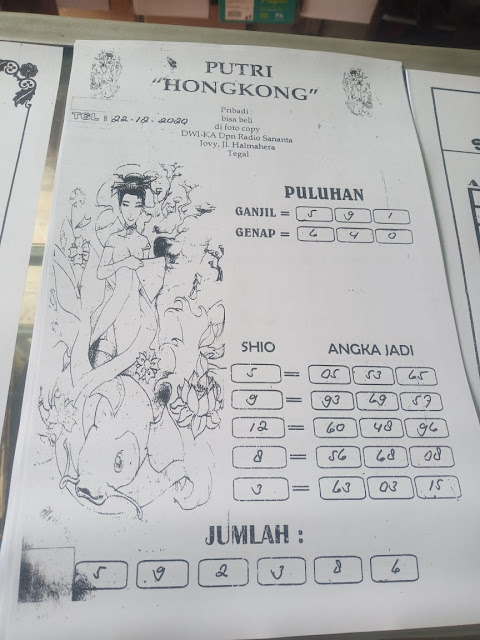 PUTRI
"HONGKONG"
TGL : 22-12-2020
Pribadi
bisa beli
di foto copy
DWI-KA Dpn Radio Sananta
Jovy, Jl. Halmahera
Tegal
PULUHAN
GANJIL = 5 9 1
GENAP = 6 4 0
SHIO ANGKA JADI
5 = 05 53 65
9 = 93 69 57
12 = 60 48 96
8 = 56 68 08
3 = 63 03 15
JUMLAH :
5 9 2 3 8 6